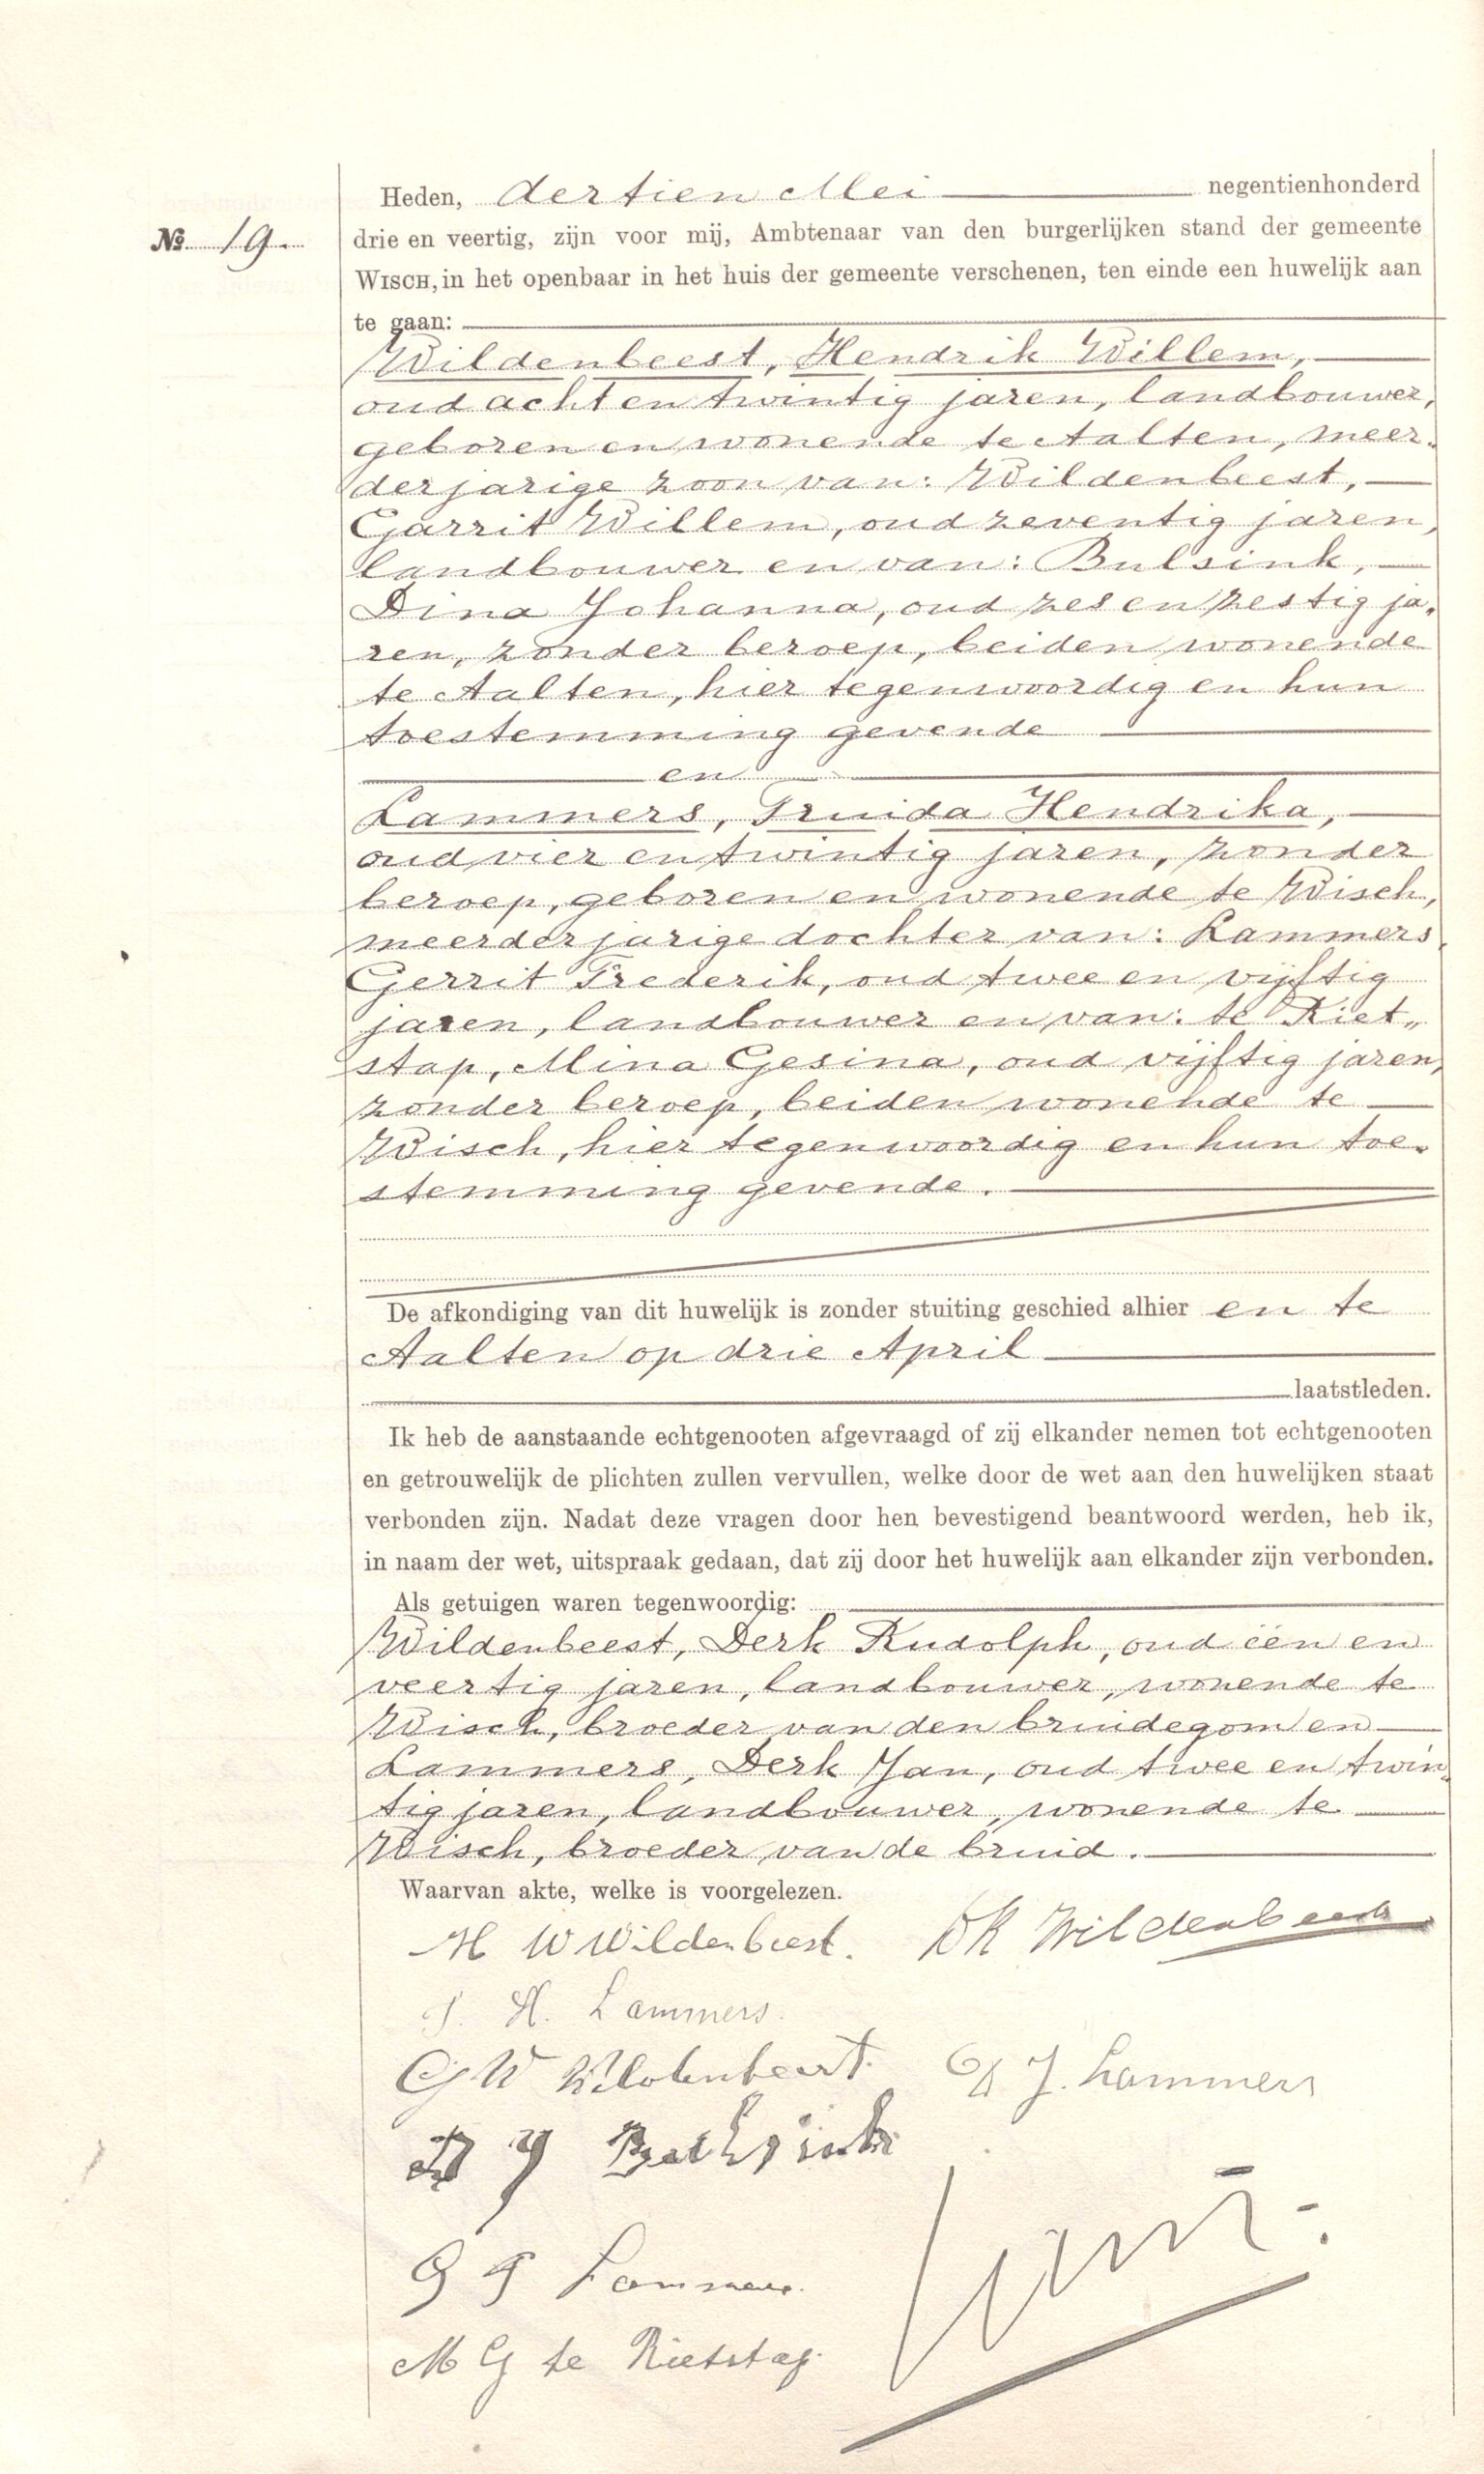 Heden, dertien Mei negentienhonderd
№ 19.
drie en veertig, zijn voor mij, Ambtenaar van den burgerlijken stand der gemeente
WISCH, in het openbaar in het huis der gemeente verschenen, ten einde een huwelijk aan
te gaan:
Wildenbeest, Hendrik Willem,
oud acht en twintig jaren, landbouwer,
geboren en wonende te Aalten, meer-
derjarige zoon van: Wildenbeest,
Garrit Willem, oud zeventig jaren,
landbouwer en van: Bulsink,
Dina Johanna, oud zes en zestig ja-
ren, zonder beroep, beiden wonende
te Aalten, hier tegenwoordig en hun
toestemming gevende
en
Lammers, Truida Hendrika,
oud vier en twintig jaren, zonder
beroep, geboren en wonende te Wisch,
meerderjarige dochter van: Lammers,
Gerrit Frederik, oud twee en vijftig
jaren, landbouwer en van: te Riet„
stap, Mina Gesina, oud vijftig jaren,
zonder beroep, beiden wonende te
Wisch, hier tegenwoordig en hun toe-
stemming gevende.
De afkondiging van dit huwelijk is zonder stuiting geschied alhier en te
Aalten op drie April
laatstleden.
Ik heb de aanstaande echtgenooten afgevraagd of zij elkander nemen tot echtgenooten
en getrouwelijk de plichten zullen vervullen, welke door de wet aan den huwelijken staat
verbonden zijn. Nadat deze vragen door hen bevestigend beantwoord werden, heb ik,
in naam der wet, uitspraak gedaan, dat zij door het huwelijk aan elkander zijn verbonden.
Als getuigen waren tegenwoordig:
Wildenbeest, Derk Rudolph, oud één en
veertig jaren, landbouwer, wonende te
Wisch, broeder van den bruidegom en
Lammers, Derk Jan, oud twee en twin-
tig jaren, landbouwer, wonende te
Wisch, broeder van de bruid.
Waarvan akte, welke is voorgelezen.
H W Wildenbeest. DR Wildenbeest
T. H. Lammers.
G W Wildenbeest. D J. Lammers
D J
G F Lammers.
M G te Rietstap.